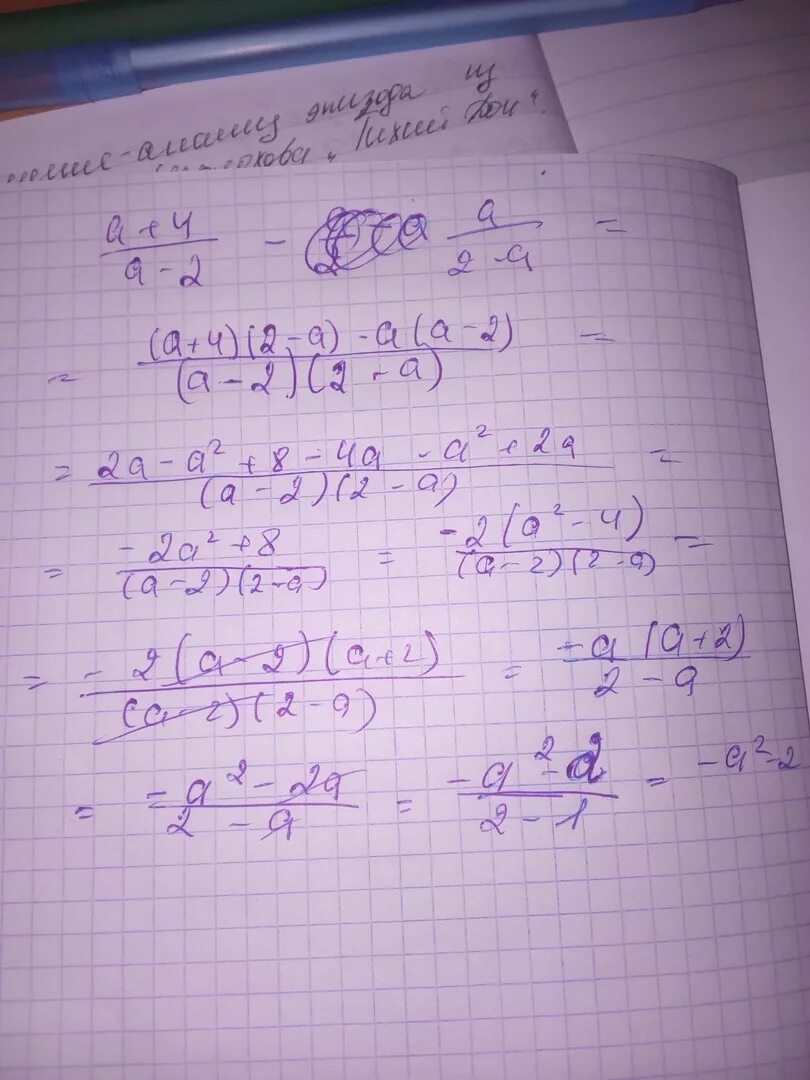 анализ эпизода из
"Тихий Дон".
(a+4)/(a-2) - a/(2-a) =
= ((a+4)(2-a)-a(a-2))/((a-2)(2-a)) =
= (2a-a²+8-4a-a²+2a)/((a-2)(2-a)) =
= (-2a²+8)/((a-2)(2-a)) = (-2(a²-4))/((a-2)(2-a)) =
= (-2(a-2)(a+2))/((a-2)(2-a)) = (-a(a+2))/(2-a)
= (-a²-2a)/(2-a) = (-a²-2)/(2-1) = -a²-2